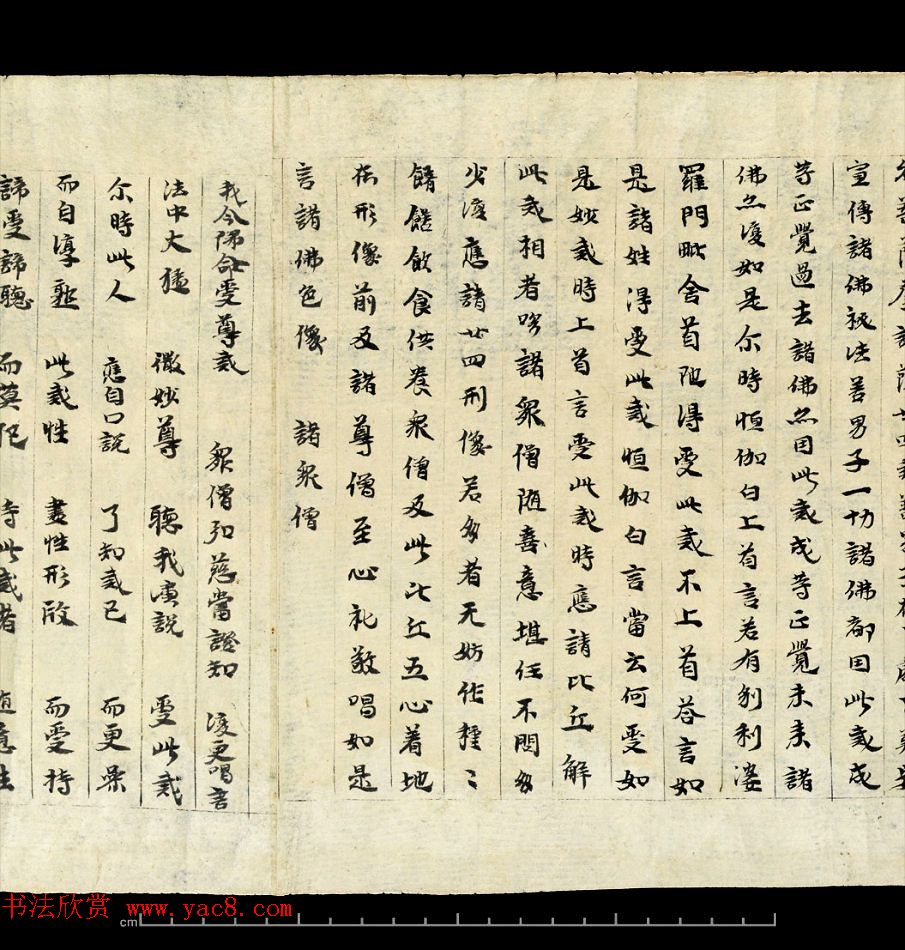 宣傳諸佛秘法善男子一切諸佛都因此戒成
等正覺過去諸佛亦因此戒成等正覺未来諸
佛亦復如是尒時恒伽白上首言若有刹利婆
羅門毗舍首陁得受此戒不上首荅言如
是諸姓得受此戒恒伽白言當云何受如
是妙戒時上首言受此戒時應請比丘解
此戒相者唤諸衆僧随喜意堪任不問多
少復應請廿四形像若多者无妨作種〻
餚饍飲食供養衆僧及此比丘五心着地
在形像前及諸尊僧至心礼敬唱如是
言 諸佛色像 諸衆僧
我今歸命受尊戒 衆僧弘慈當證知 復更唱言
法中大猛 微妙尊 聽我演説 受此戒
尒時此人 應自口説 了知戒已 而更
而自 此戒性 盡性形 而受持
諦受諦聽 而莫犯 持此戒者 随意生
书法欣赏 www.yac8.com
cm